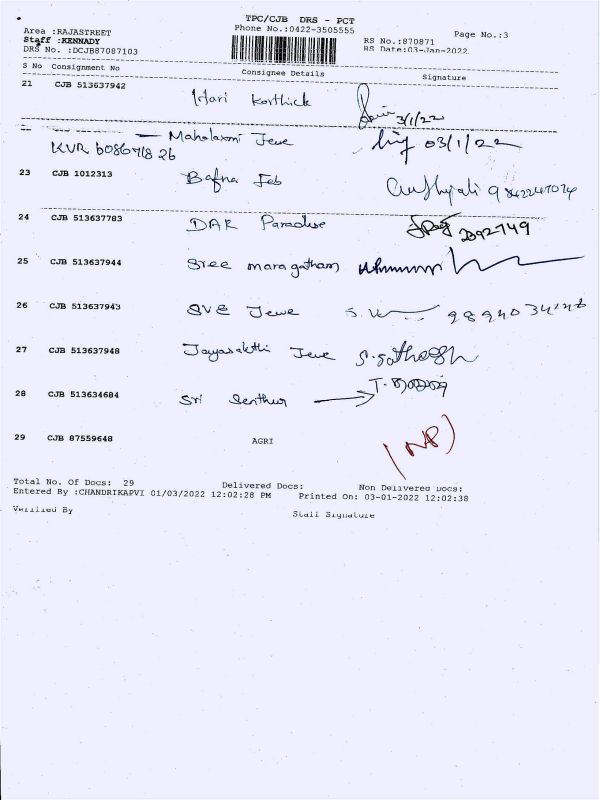 TPC/CJB DRS - PCT
Area :RAJASTREET
Phone No.:0422-3505555
Page No.:3
Staff :KENNADY
RS No.:870871
DRS No. :DCJB87087103
RS Date:03-Jan-2022
S No Consignment No Consignee Details Signature
21 CJB 513637942 Hari Karthick 3/1/22
Mahalaxmi Jewe 03/1/22
KVR
23 CJB 1012313 Bafna Jeb
24 CJB 513637783 DAR Paradise 2392749
25 CJB 513637944 Sree maragatham
26 CJB 513637943 SVB Jewe
27 CJB 513637948 Jayasakthi Jewe S.Sathosh
28 CJB 513634684 Sri Senthur
29 CJB 87559648 AGRI
Total No. Of Docs: 29 Delivered Docs: Non Delivered Docs:
Entered By :CHANDRIKAPVI 01/03/2022 12:02:28 PM Printed On: 03-01-2022 12:02:38
Verified By Staff Signature